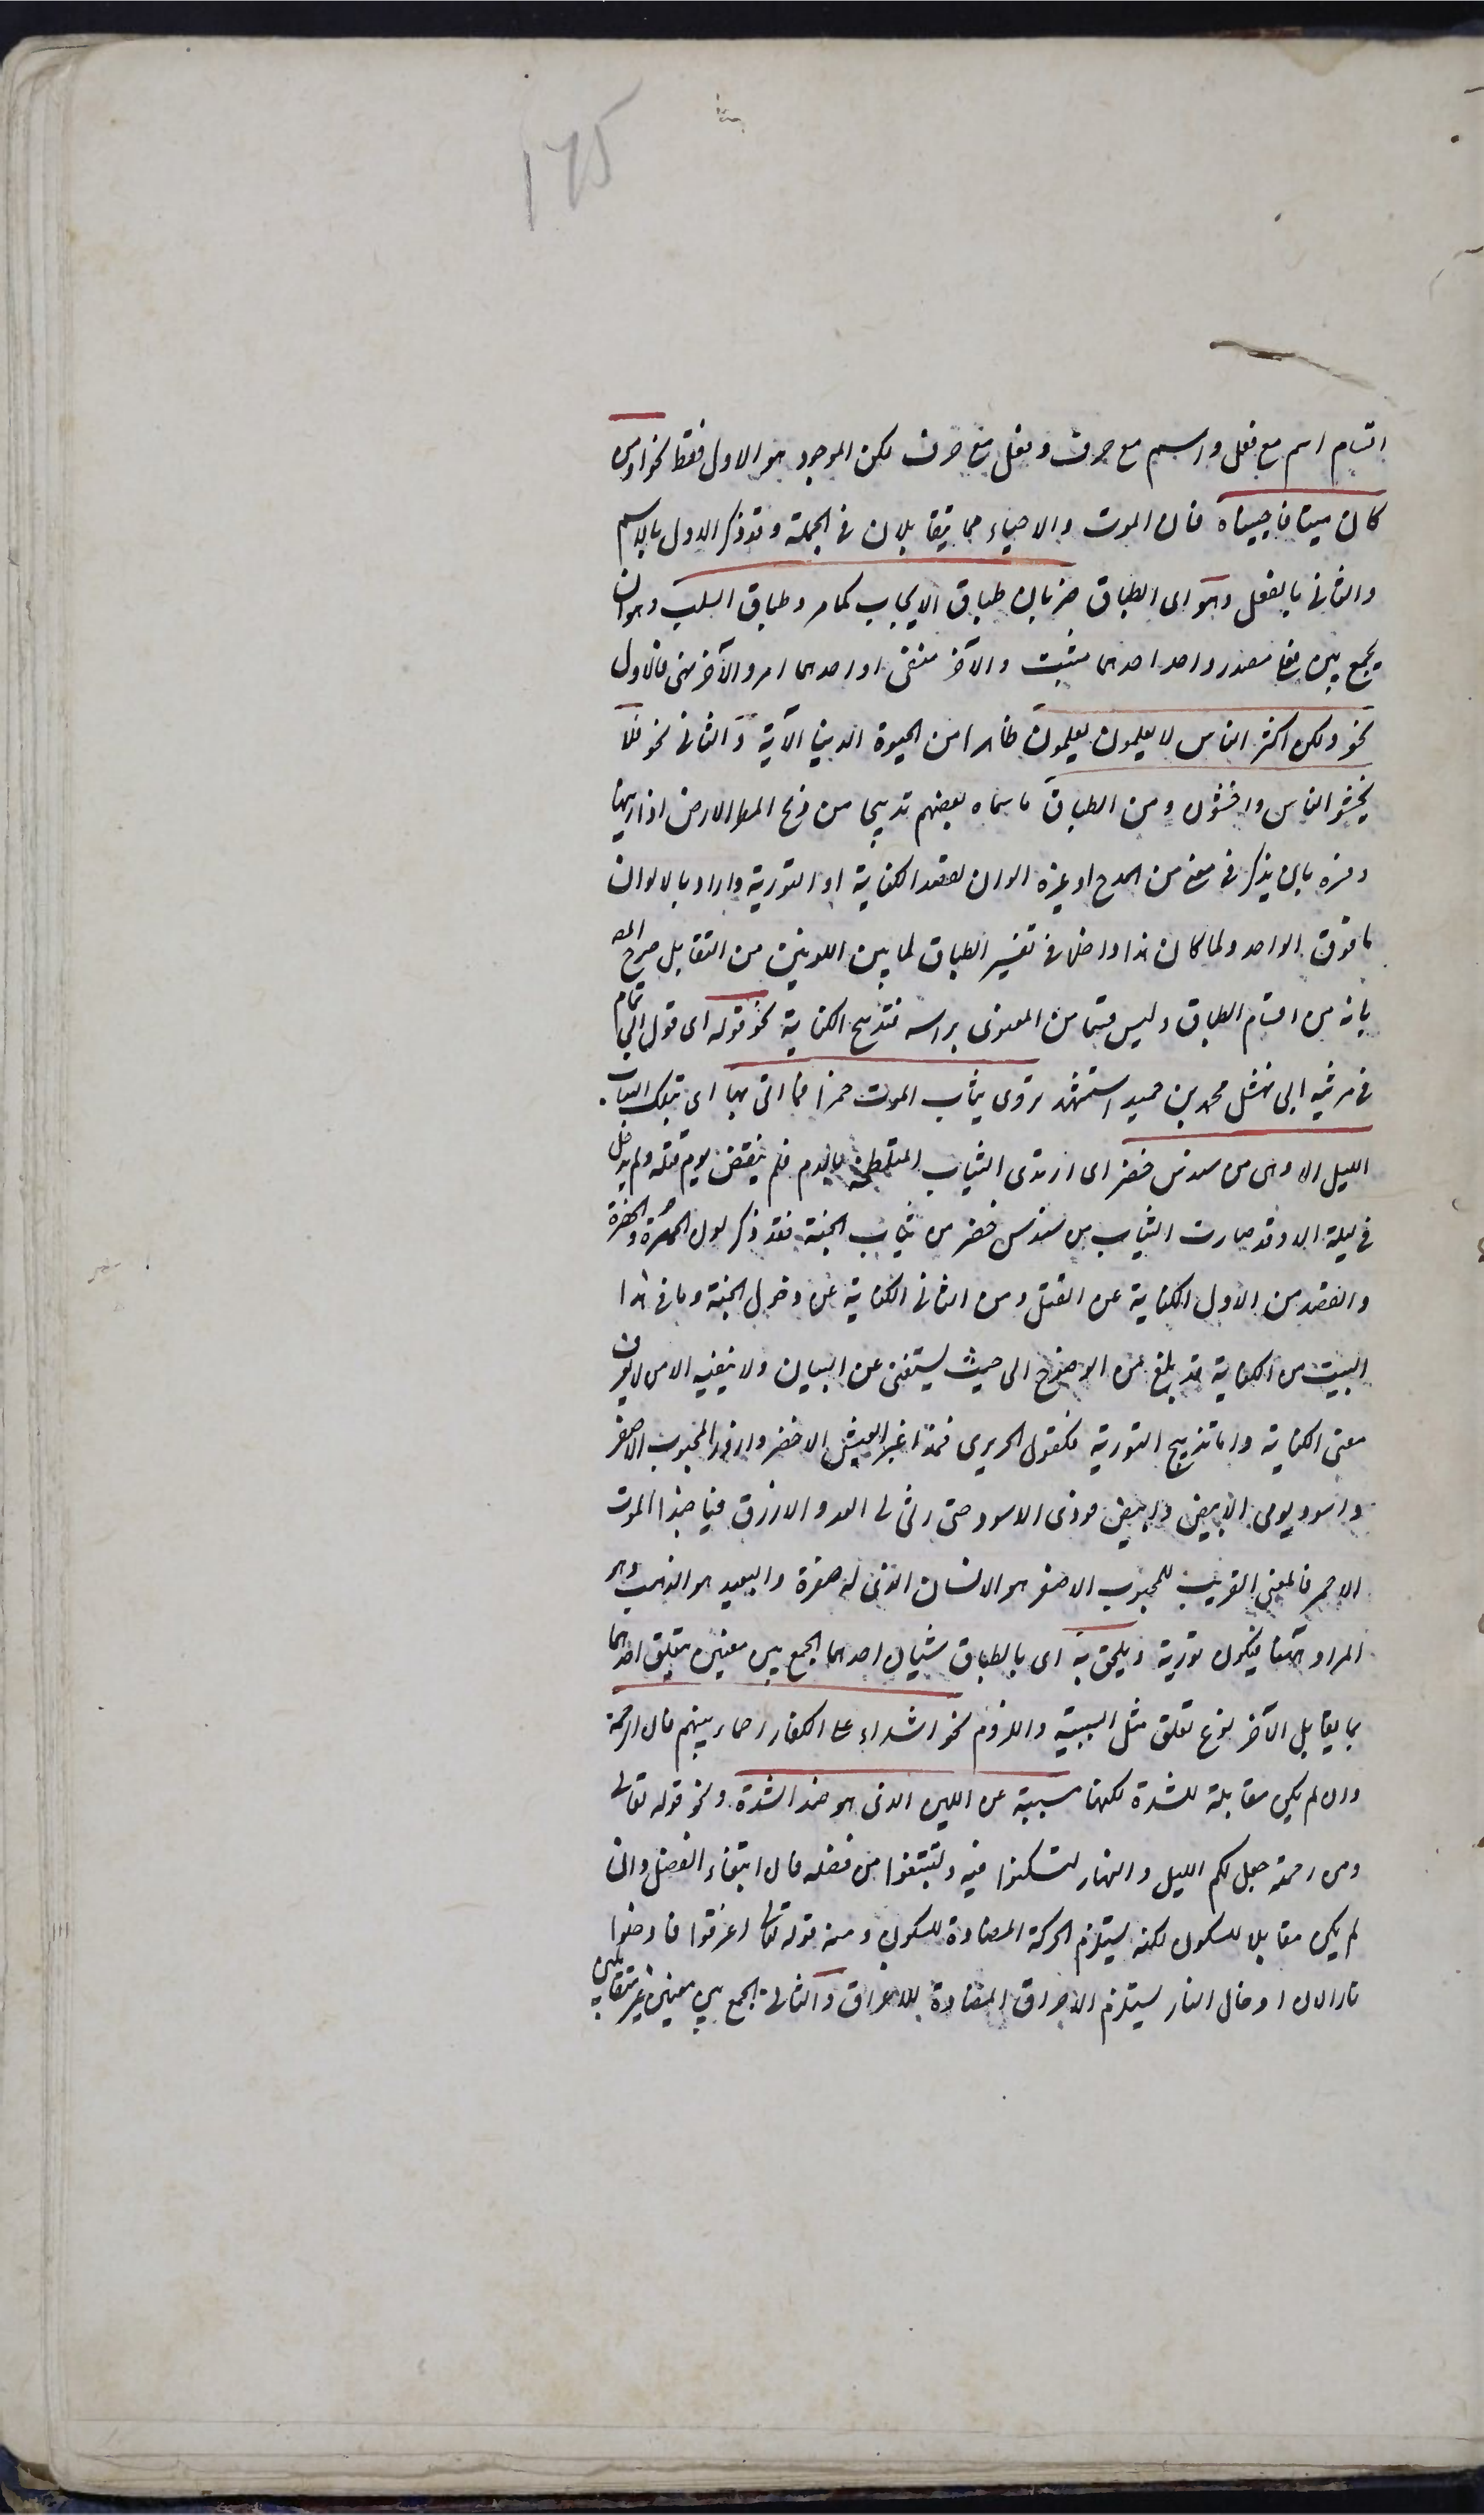 175
اقسام اسم مع فعل واسم مع حرف وفعل مع حرف لكن الموجود هو الاول فقط نحو اومن
كان ميتا فاحييناه فان الموت والاحياء مما يتقابلان فى الجملة وقد ذكر الاول بالاسم
والثانى بالفعل وهو اى الطباق ضربان طباق الايجاب كما مر وطباق السلب وهو ان
يجمع بين فعلى مصدر واحد احدهما مثبت والآخر منفى او احدهما امر والآخر نهى فالاول
نحو ولكن اكثر الناس لا يعلمون يعلمون ظاهرا من الحيوة الدنيا الآية والثانى نحو فلا
تخشوا الناس واخشون ومن الطباق ما سماه بعضهم تدبيجا من دبج المطر الارض اذا زينها
وفسره بان يذكر فى معنى من المدح او غيره الوان لقصد الكناية او التورية واراد بالالوان
ما فوق الواحد ولما كان هذا داخلا فى تفسير الطباق لما بين اللونين من التقابل صرح المص
بانه من اقسام الطباق وليس قسما من المعنوى براسه فتدبيج الكناية نحو قوله اى قول ابى تمام
فى مرثية ابى نهشل محمد بن حميد استشهد تردى ثياب الموت حمرا فما اتى لها اى لتلك الثياب
الليل الا وهى من سندس خضر اى ارتدى الثياب الملطخة بالدم فلم ينقض يوم قتله ولم يدخل
فى ليلة الا وقد صارت الثياب من سندس خضر من ثياب الجنة فقد ذكر لون الحمرة والخضرة
والقصد من الاول الكناية عن القتل ومن الثانى الكناية عن دخول الجنة وما فى هذا
البيت من الكناية قد بلغ من الوضوح الى حيث يستغنى عن البيان ولا ينفيه الا من لا يعرف
معنى الكناية واما تدبيج التورية فكقول الحريرى فمذ اغبر العيش الاخضر وازور المحبوب الاصفر
واسود يومى الابيض وابيض فودى الاسود حتى رثى لى العدو الازرق فيا حبذا الموت
الاحمر فالمعنى القريب للمحبوب الاصفر هو الانسان الذى له صفرة والبعيد هو الذهب وهو
المراد ههنا فيكون تورية ويلحق به اى بالطباق شيئان احدهما الجمع بين معنيين يتعلق احدهما
بما يقابل الآخر نوع تعلق مثل السببية واللزوم نحو اشداء على الكفار رحماء بينهم فان الرحمة
وان لم يكن مقابلة للشدة لكنها مسببة عن اللين الذى هو ضد الشدة ونحو قوله تعالى
ومن رحمته جعل لكم الليل والنهار لتسكنوا فيه ولتبتغوا من فضله فان ابتغاء الفضل وان
لم يكن مقابلا للسكون لكنه يستلزم الحركة المضادة للسكون ومنه قوله تعالى اغرقوا فادخلوا
نارا لان ادخال النار يستلزم الاحراق المضادة للاغراق والثانى الجمع بين معنيين غير متقابلين